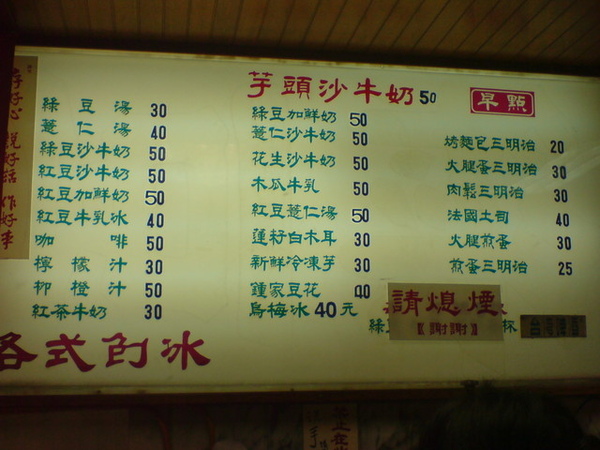 芋頭沙牛奶 50
早點
綠豆湯 30
薏仁湯 40
綠豆沙牛奶 50
紅豆沙牛奶 50
紅豆加鮮奶 50
紅豆牛乳冰 40
咖啡 50
檸檬汁 30
柳橙汁 50
紅茶牛奶 30
綠豆加鮮奶 50
薏仁沙牛奶 50
花生沙牛奶 50
木瓜牛乳 50
紅豆薏仁湯 50
蓮籽白木耳 30
新鮮冷凍芋 30
鍾家豆花 40
烏梅冰 40元
烤麵包三明治 20
火腿蛋三明治 30
肉鬆三明治 30
法國土司 40
火腿煎蛋 30
煎蛋三明治 25
請熄煙
謝謝
綠
杯
各式的冰
存好心 說好話 作好事